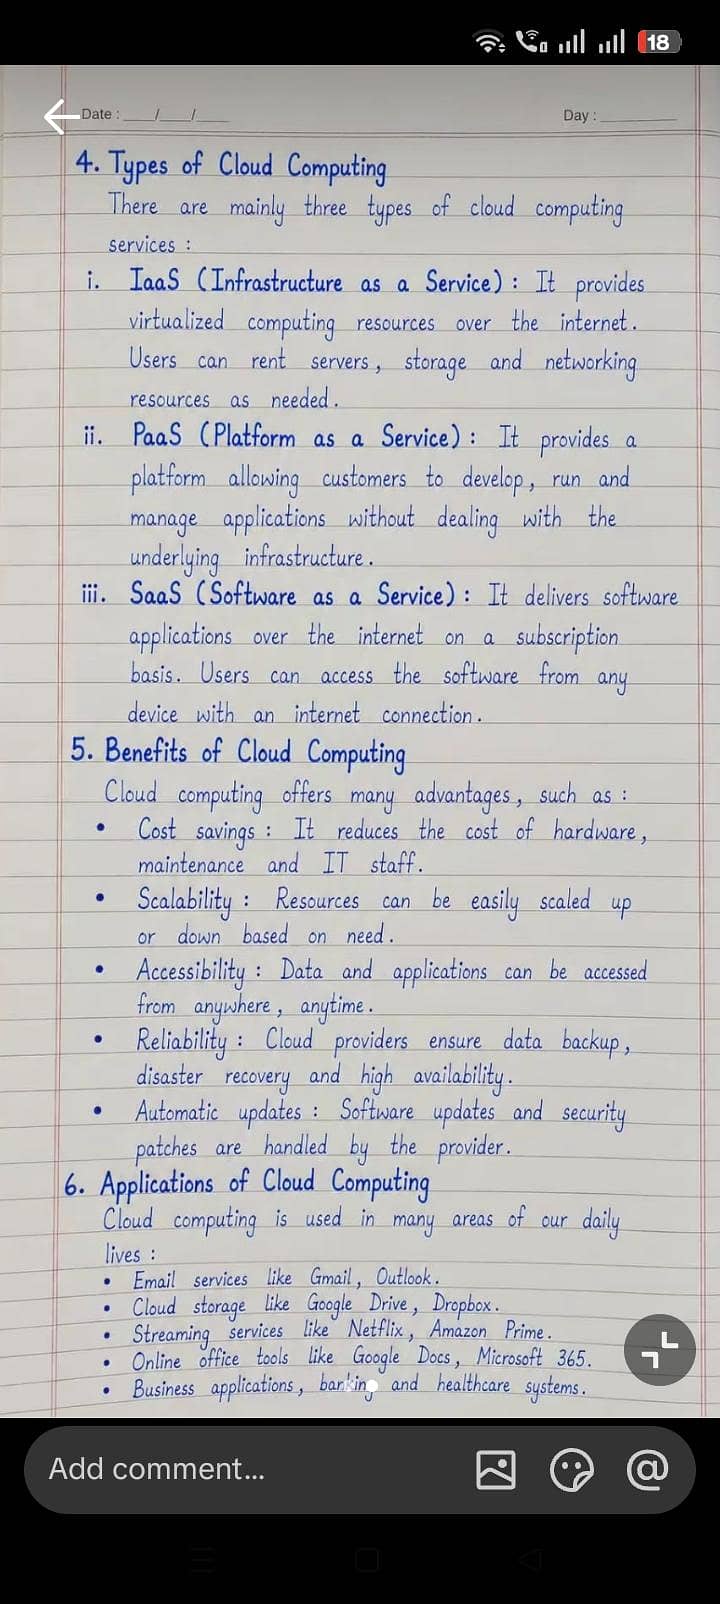 18
Date : ___/___/___
Day : ________
4. Types of Cloud Computing
There are mainly three types of cloud computing
services :
i. IaaS (Infrastructure as a Service) : It provides
virtualized computing resources over the internet.
Users can rent servers, storage and networking
resources as needed.
ii. PaaS (Platform as a Service) : It provides a
platform allowing customers to develop, run and
manage applications without dealing with the
underlying infrastructure.
iii. SaaS (Software as a Service) : It delivers software
applications over the internet on a subscription
basis. Users can access the software from any
device with an internet connection.
5. Benefits of Cloud Computing
Cloud computing offers many advantages, such as :
• Cost savings : It reduces the cost of hardware,
maintenance and IT staff.
• Scalability : Resources can be easily scaled up
or down based on need.
• Accessibility : Data and applications can be accessed
from anywhere, anytime.
• Reliability : Cloud providers ensure data backup,
disaster recovery and high availability.
• Automatic updates : Software updates and security
patches are handled by the provider.
6. Applications of Cloud Computing
Cloud computing is used in many areas of our daily
lives :
• Email services like Gmail, Outlook.
• Cloud storage like Google Drive, Dropbox.
• Streaming services like Netflix, Amazon Prime.
• Online office tools like Google Docs, Microsoft 365.
• Business applications, banking and healthcare systems.
Add comment...